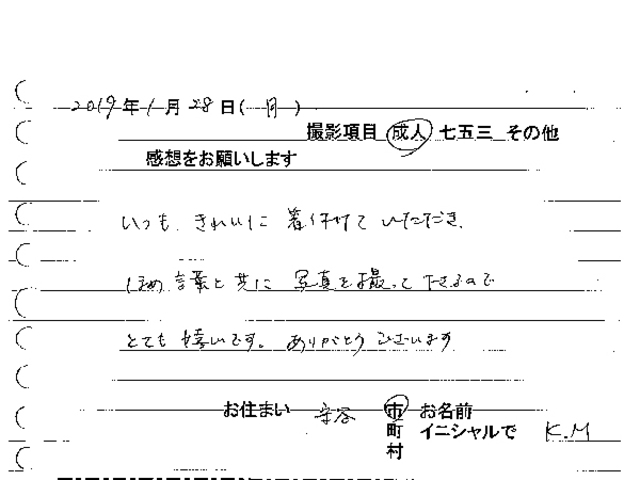 2019年1月28日(月)
撮影項目 成人 七五三 その他
感想をお願いします
いつも、きれいに着付けていただき、
ほめ言葉と共に写真を撮って下さるので
とても嬉しいです。ありがとうございます
お住まい 守谷 市 お名前
町 イニシャルで K.M
村